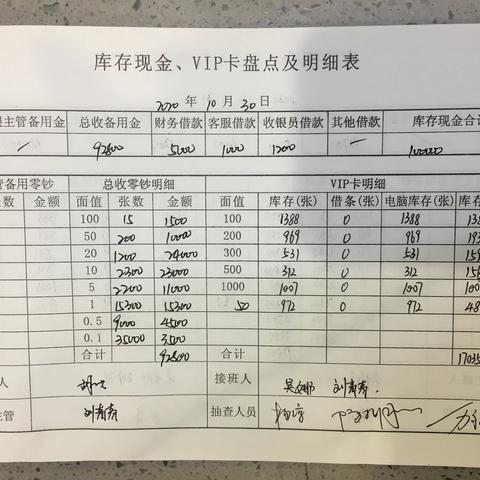 库存现金、VIP卡盘点及明细表
2020 年 10 月 30 日
主管备用金 总收备用金 财务借款 客服借款 收银员借款 其他借款 库存现金合
/ 92800 5000 1000 1200 — 100000
管备用零钞 总收零钞明细 VIP卡明细
张数 金额 面值 张数 金额 面值 库存(张) 借条(张) 电脑库存(张) 库存
100 15 1500 100 1388 0 1388 138
50 200 10000 200 969 0 969 193
20 1200 24000 300 531 0 531 159
10 2300 23000 500 312 0 312 156
5 2200 11000 1000 1007 0 1007 100
1 15300 15300 50 972 0 972 48
0.5 9000 4500
0.1 35000 3500
合计 92800 合计 17035
人 接班人 刘春芳
主管 刘春芳 抽查人员